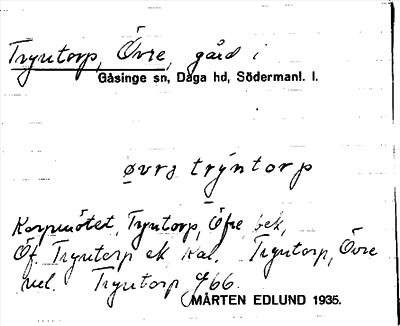 Tryntorp, Övre, gård i
Gåsinge sn, Daga hd, Södermanl. l.
øvrə trýntorp
Korpmötet, Tryntorp, Öfre bek,
Öf. Tryntorp ek kal. Tryntorp, Övre
Tryntorp 966.
MÅRTEN EDLUND 1935.